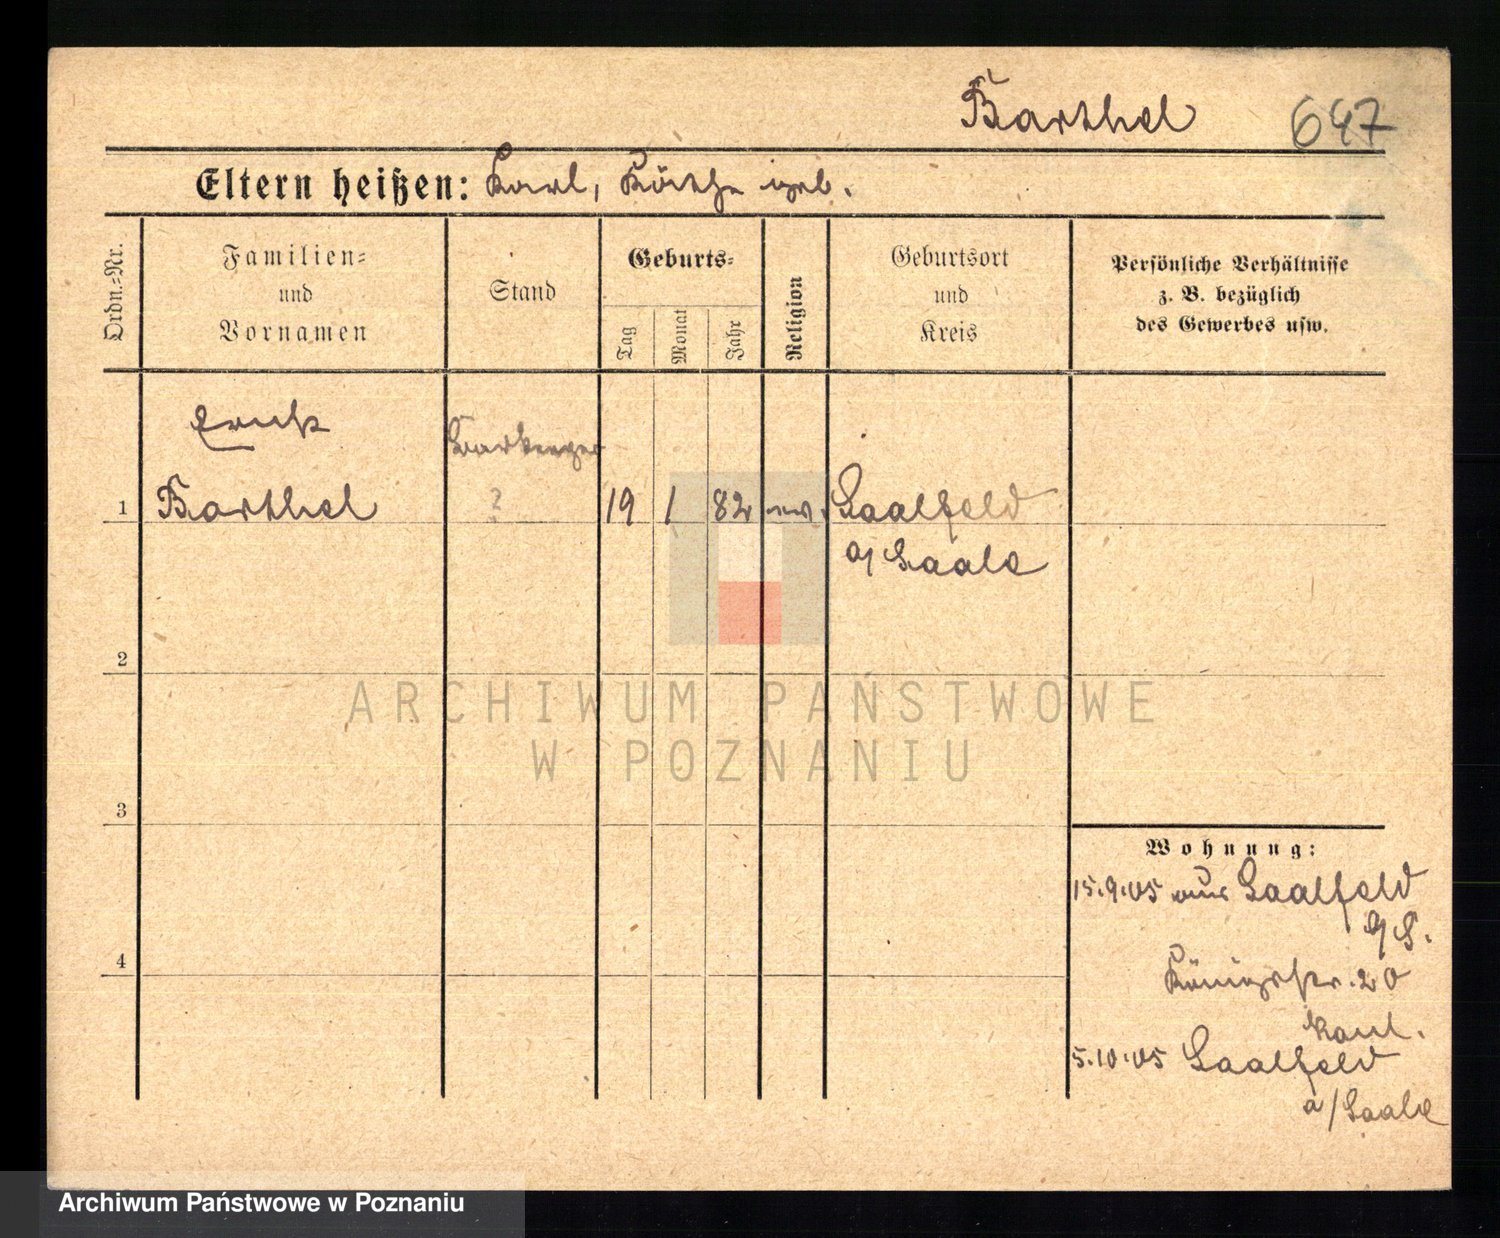 Barthel 647
Eltern heißen: Karl, Käthe geb.
Ordn.-Nr.
Familien-
und
Vornamen
Stand
Geburts-
Tag
Monat
Jahr
Religion
Geburtsort
und
Kreis
Persönliche Verhältnisse
z. B. bezüglich
des Gewerbes usw.
Erich
1 Barthel ? 19 1 82 ev. Saalfeld
a/ Saale
2
3
4
Wohnung:
15.9.05 aus Saalfeld
a/S.
Königstr. 20
5.10.05 Saalfeld
a/Saale
ARCHIWUM PAŃSTWOWE
W POZNANIU
Archiwum Państwowe w Poznaniu